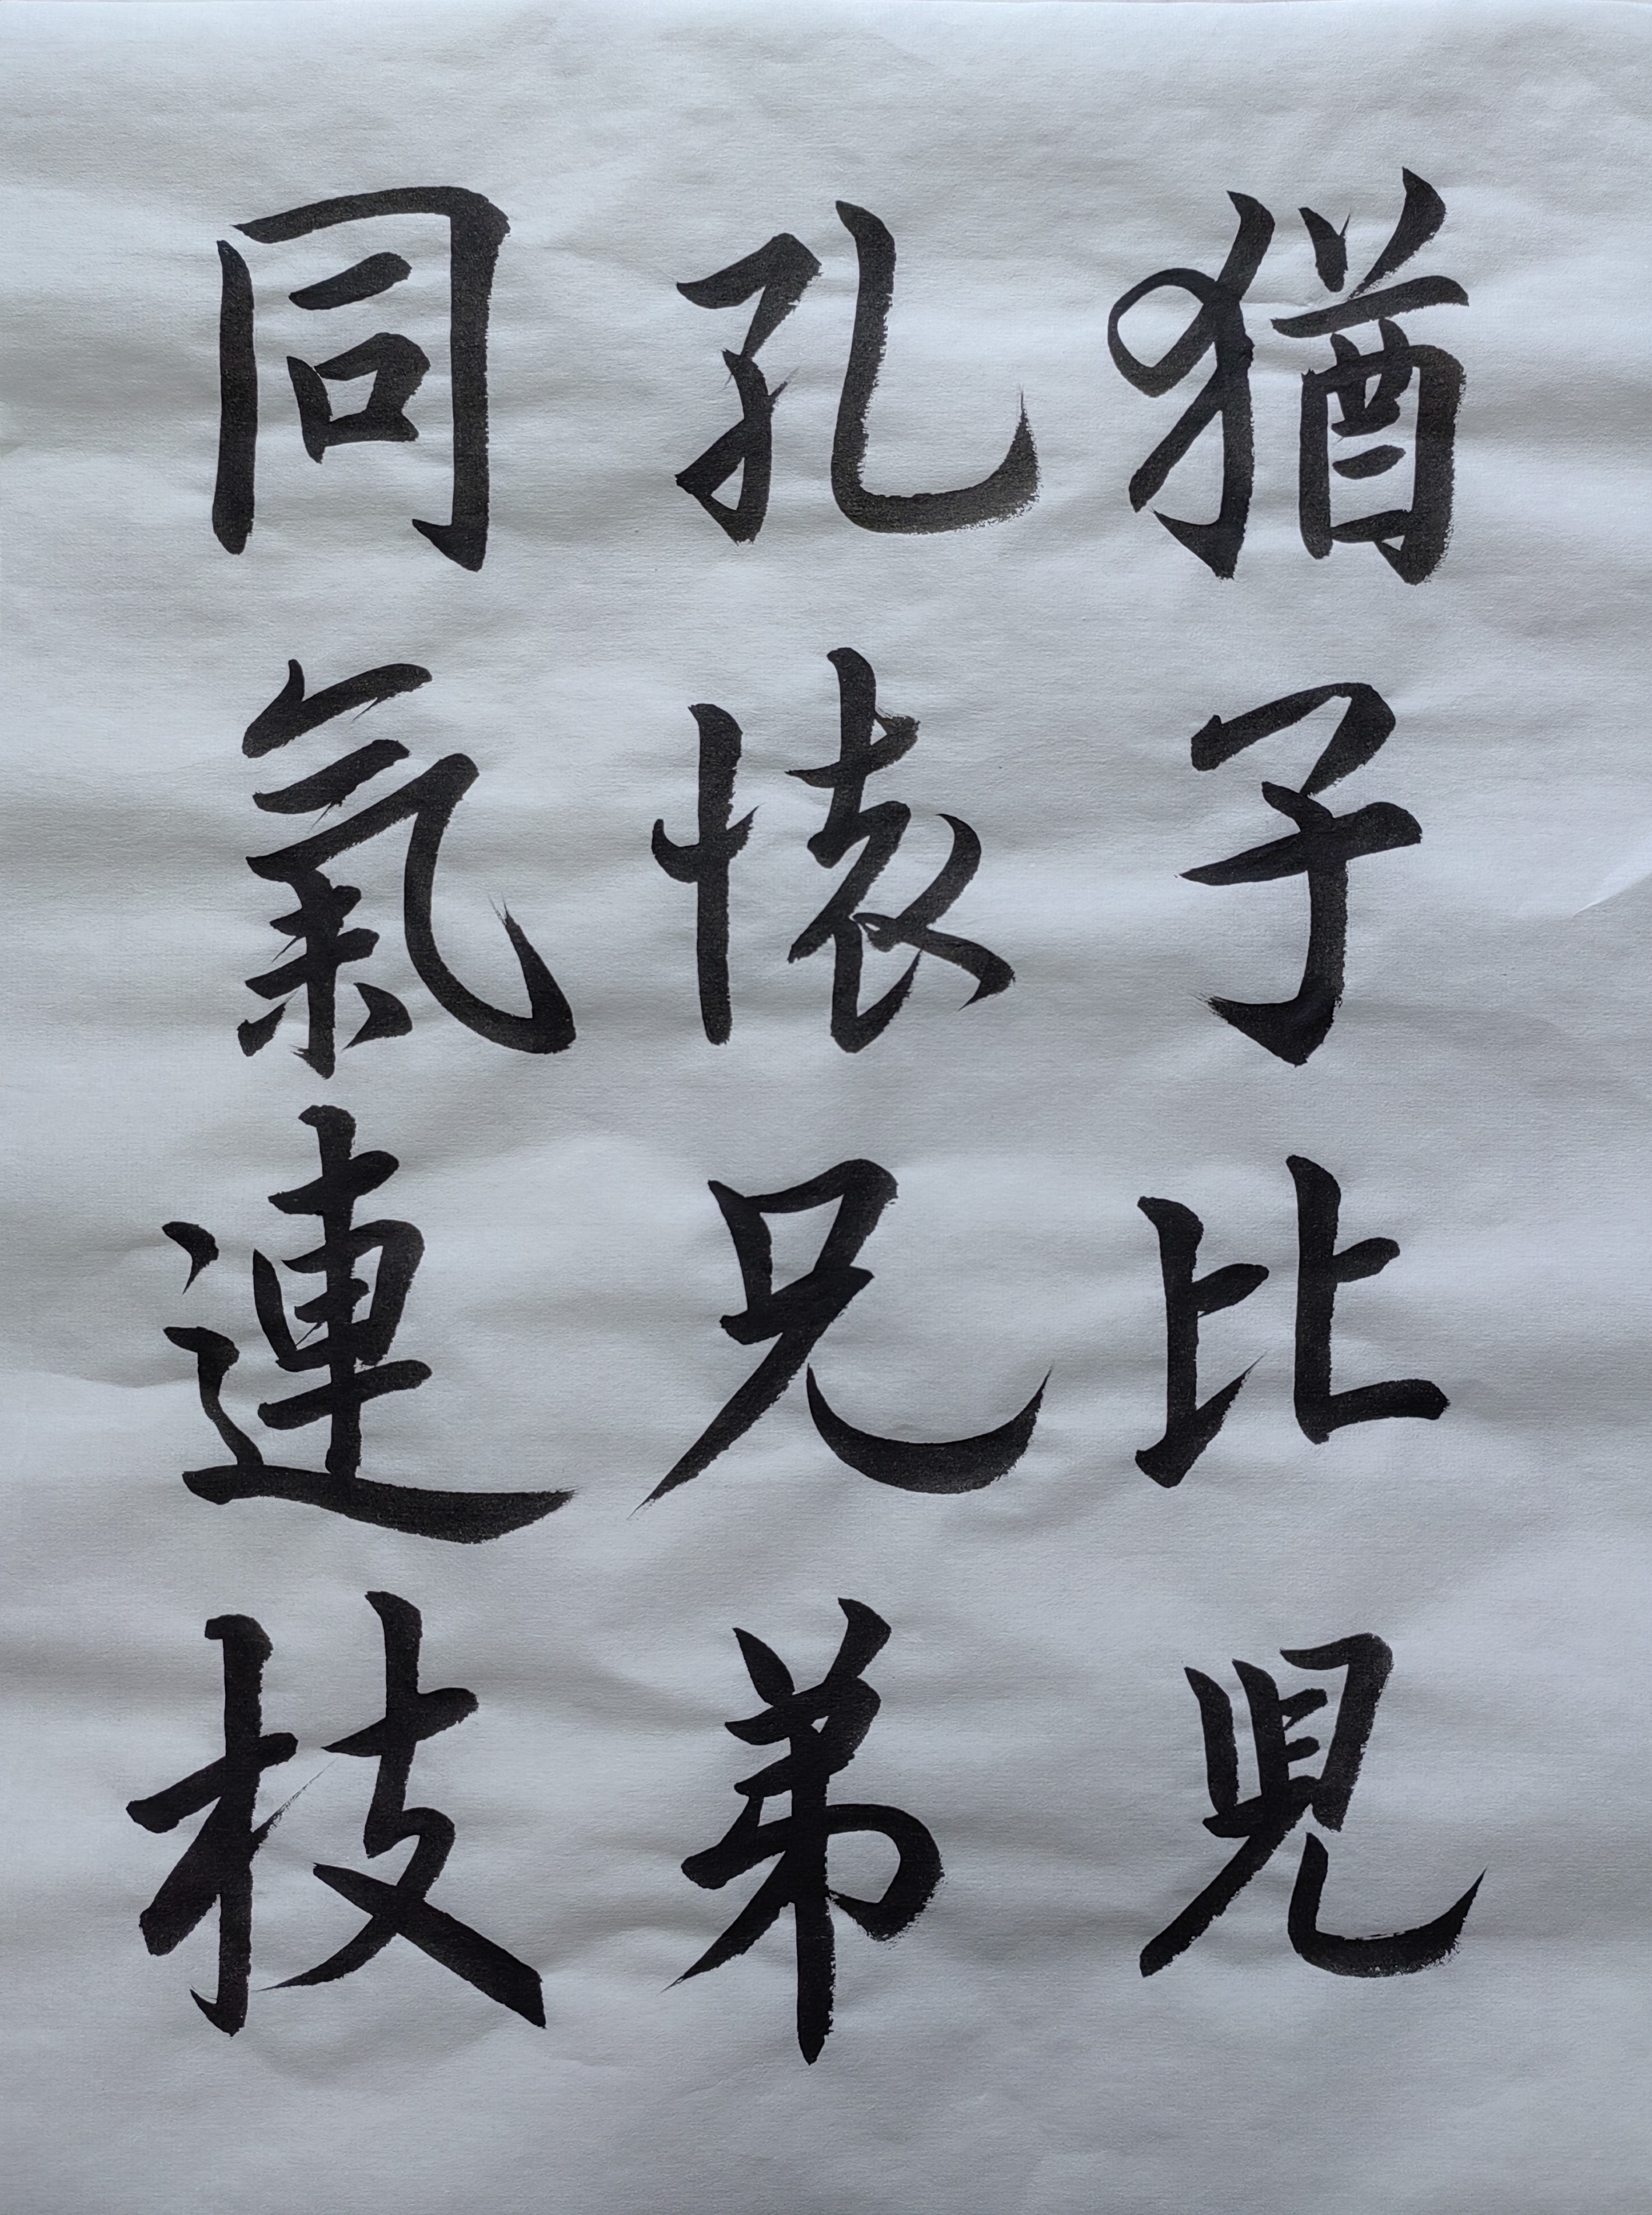 猶子比兒
孔懐兄弟
同氣連枝